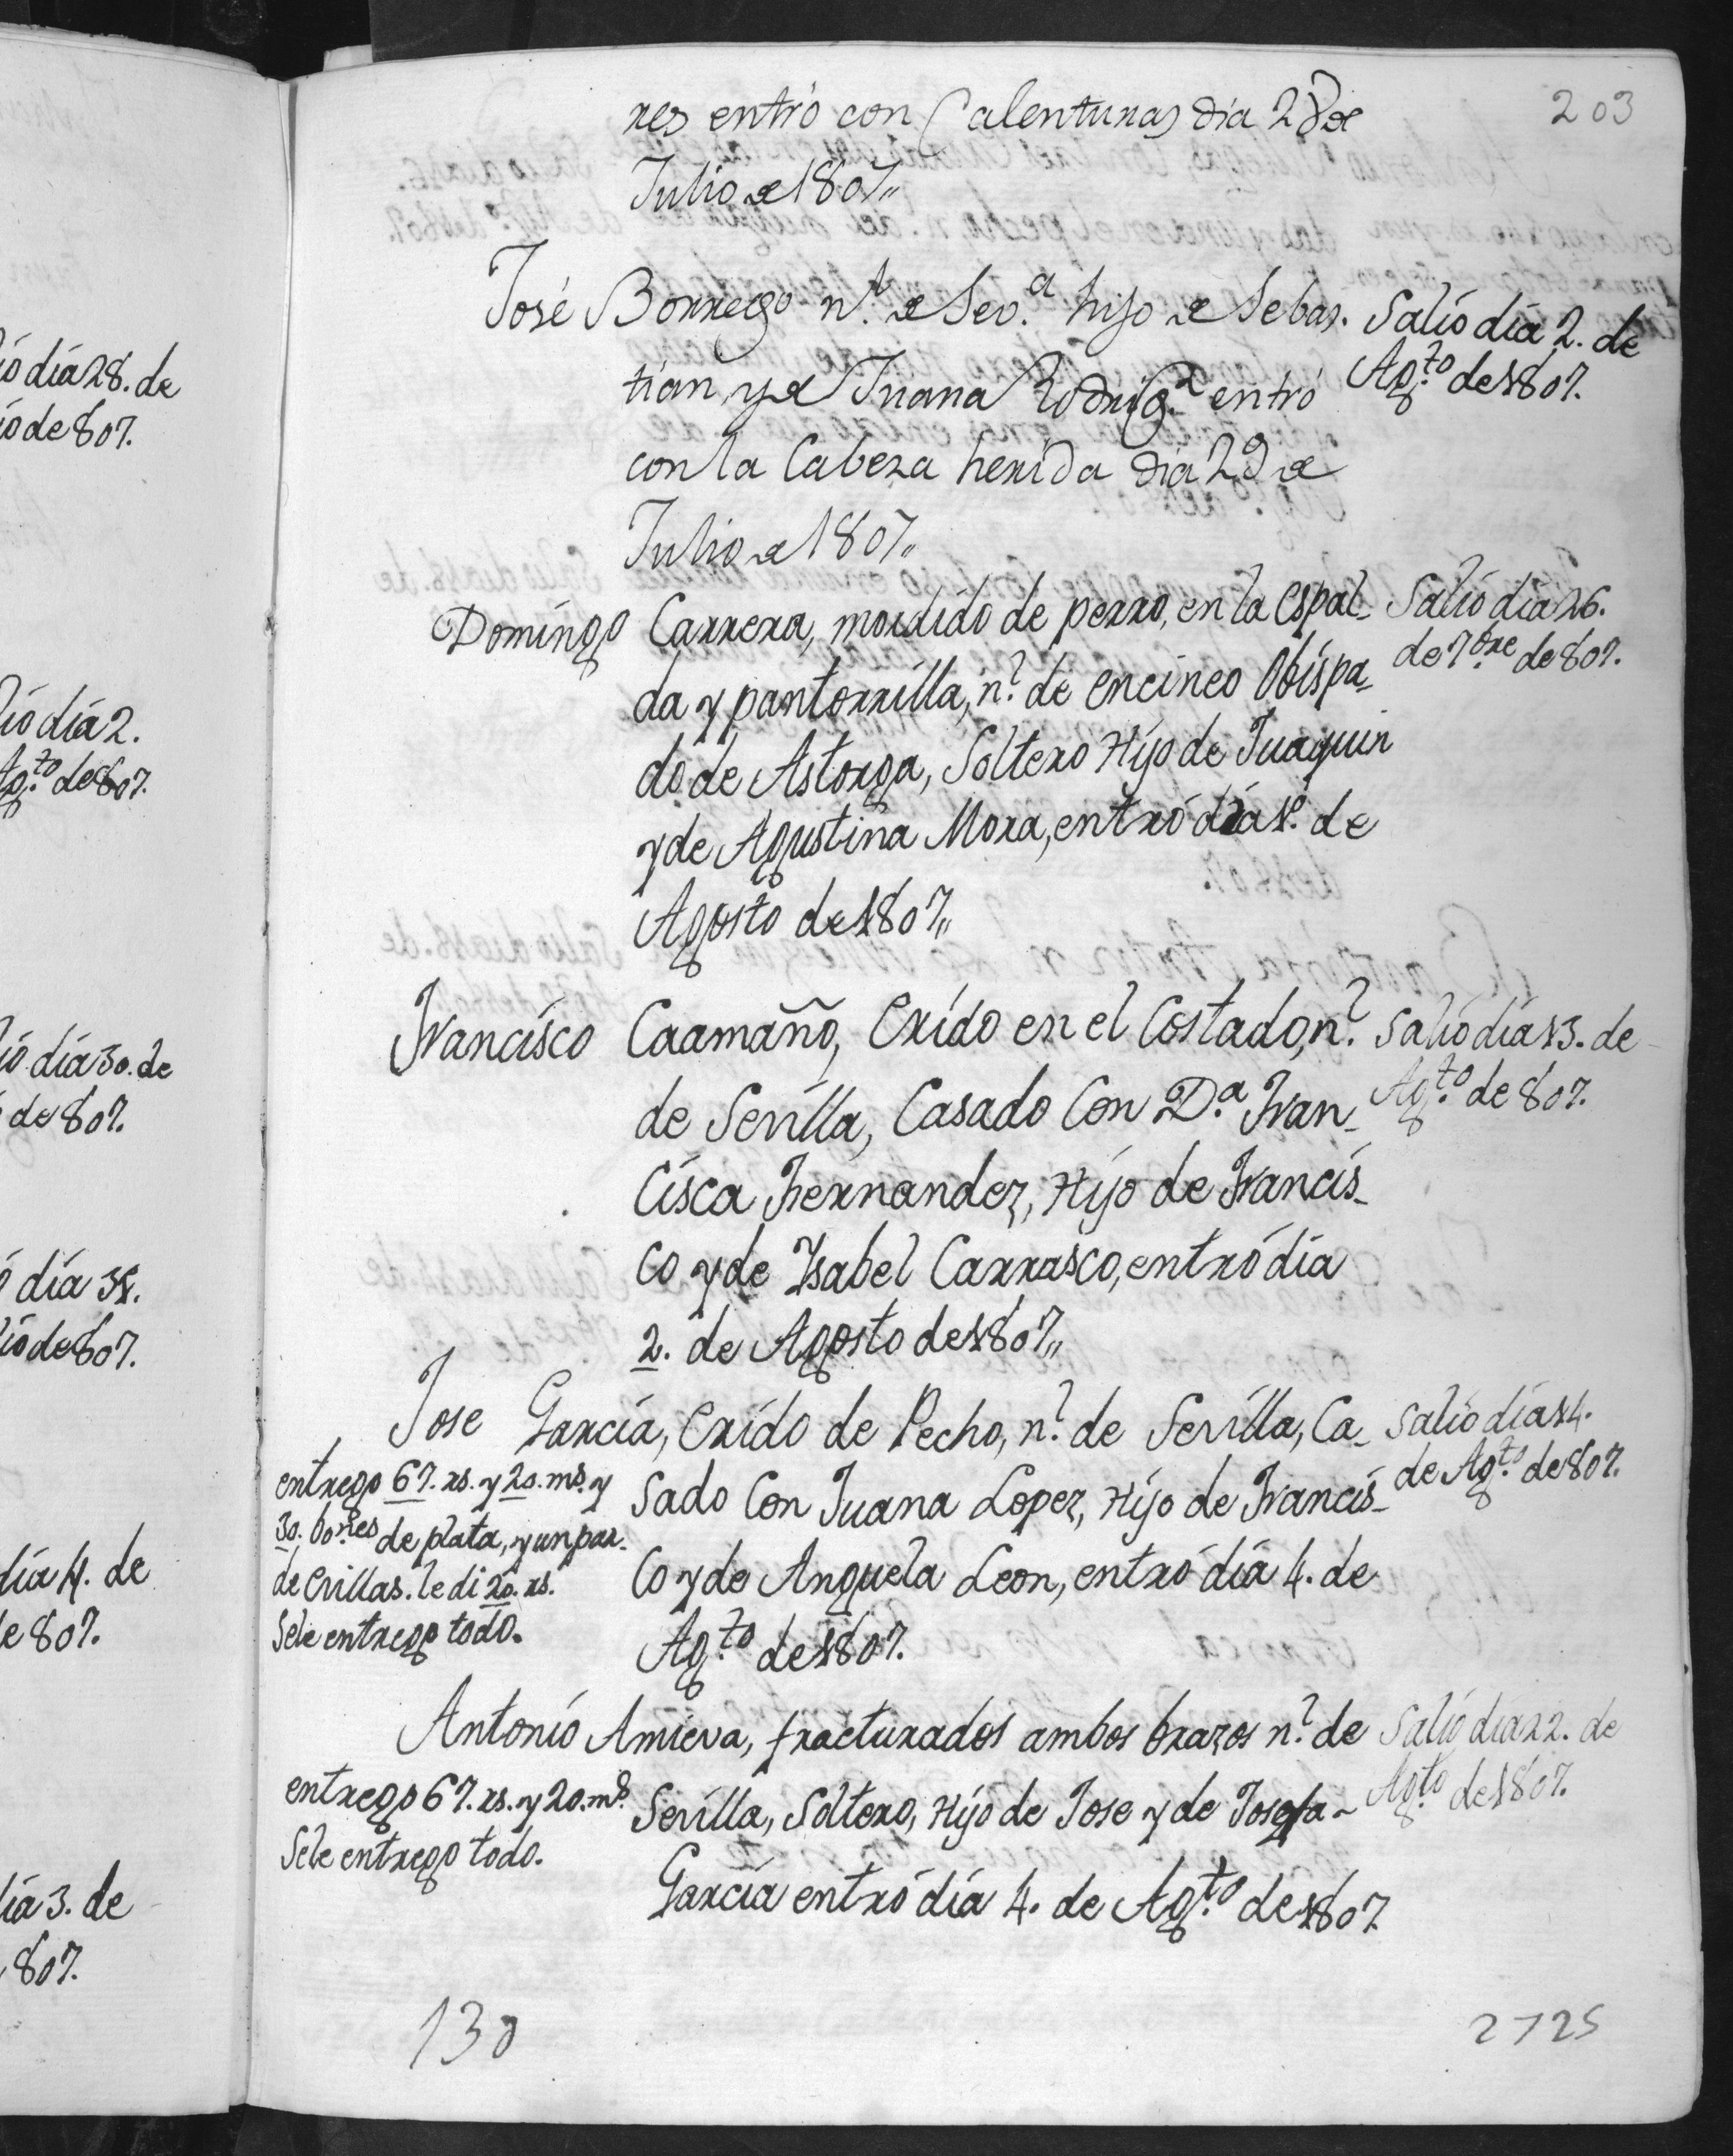 203
res entró con Calenturas dia 28 de
Julio de 1807,,
José Borrego n.l de Sev.a hijo de Sebas.
tian, y de Juana Rodrig.z entró
con la Cabeza herida dia 29 de
Julio de 1807,,
Salió día 2. de
Ag.to de 1807.
Domingo Carrera, mordido de perro, en la espal-
da y pantorrilla, n.l de encineo Obispa-
do de Astorga, Soltero Hijo de Juaquin
y de Agustina Mora, entró día 1º. de
Agosto de 1807,,
Salió día 26.
de 7bre de 807.
Francisco Caamaño, Erido en el Costado, n.l
de Sevilla, Casado Con D.a Fran-
cisca Fernandez, Hijo de Francis-
co y de Ysabel Carrasco, entró día
2. de Agosto de 1807,,
Salió día 13. de
Ag.to de 807.
Jose García, Erido de Pecho, n.l de Sevilla, Ca-
sado Con Juana Lopez, Hijo de Francis-
co y de Anguela Leon, entró día 4. de
Ag.to de 1807.
Salió día 14.
de Ag.to de 807.
entrego 67. rs. y 20. ms. y
30. bo.nes de plata, y un par.
de Evillas. le di 20. rs.
Sele entrego todo.
Antonio Amieva, fracturados ambos brazos n.l de
Sevilla, Soltero, Hijo de Jose y de Josefa
García entró día 4. de Ag.to de 1807
Salió día 22. de
Ag.to de 1807.
entrego 67. rs. y 20. ms.
Sele entrego todo.
130
2725
ió día 28. de
io de 807.
lió día 2.
Ag.to de 807.
lió día 30. de
de 807.
ó día 31.
lio de 807.
día 4. de
de 807.
día 3. de
807.